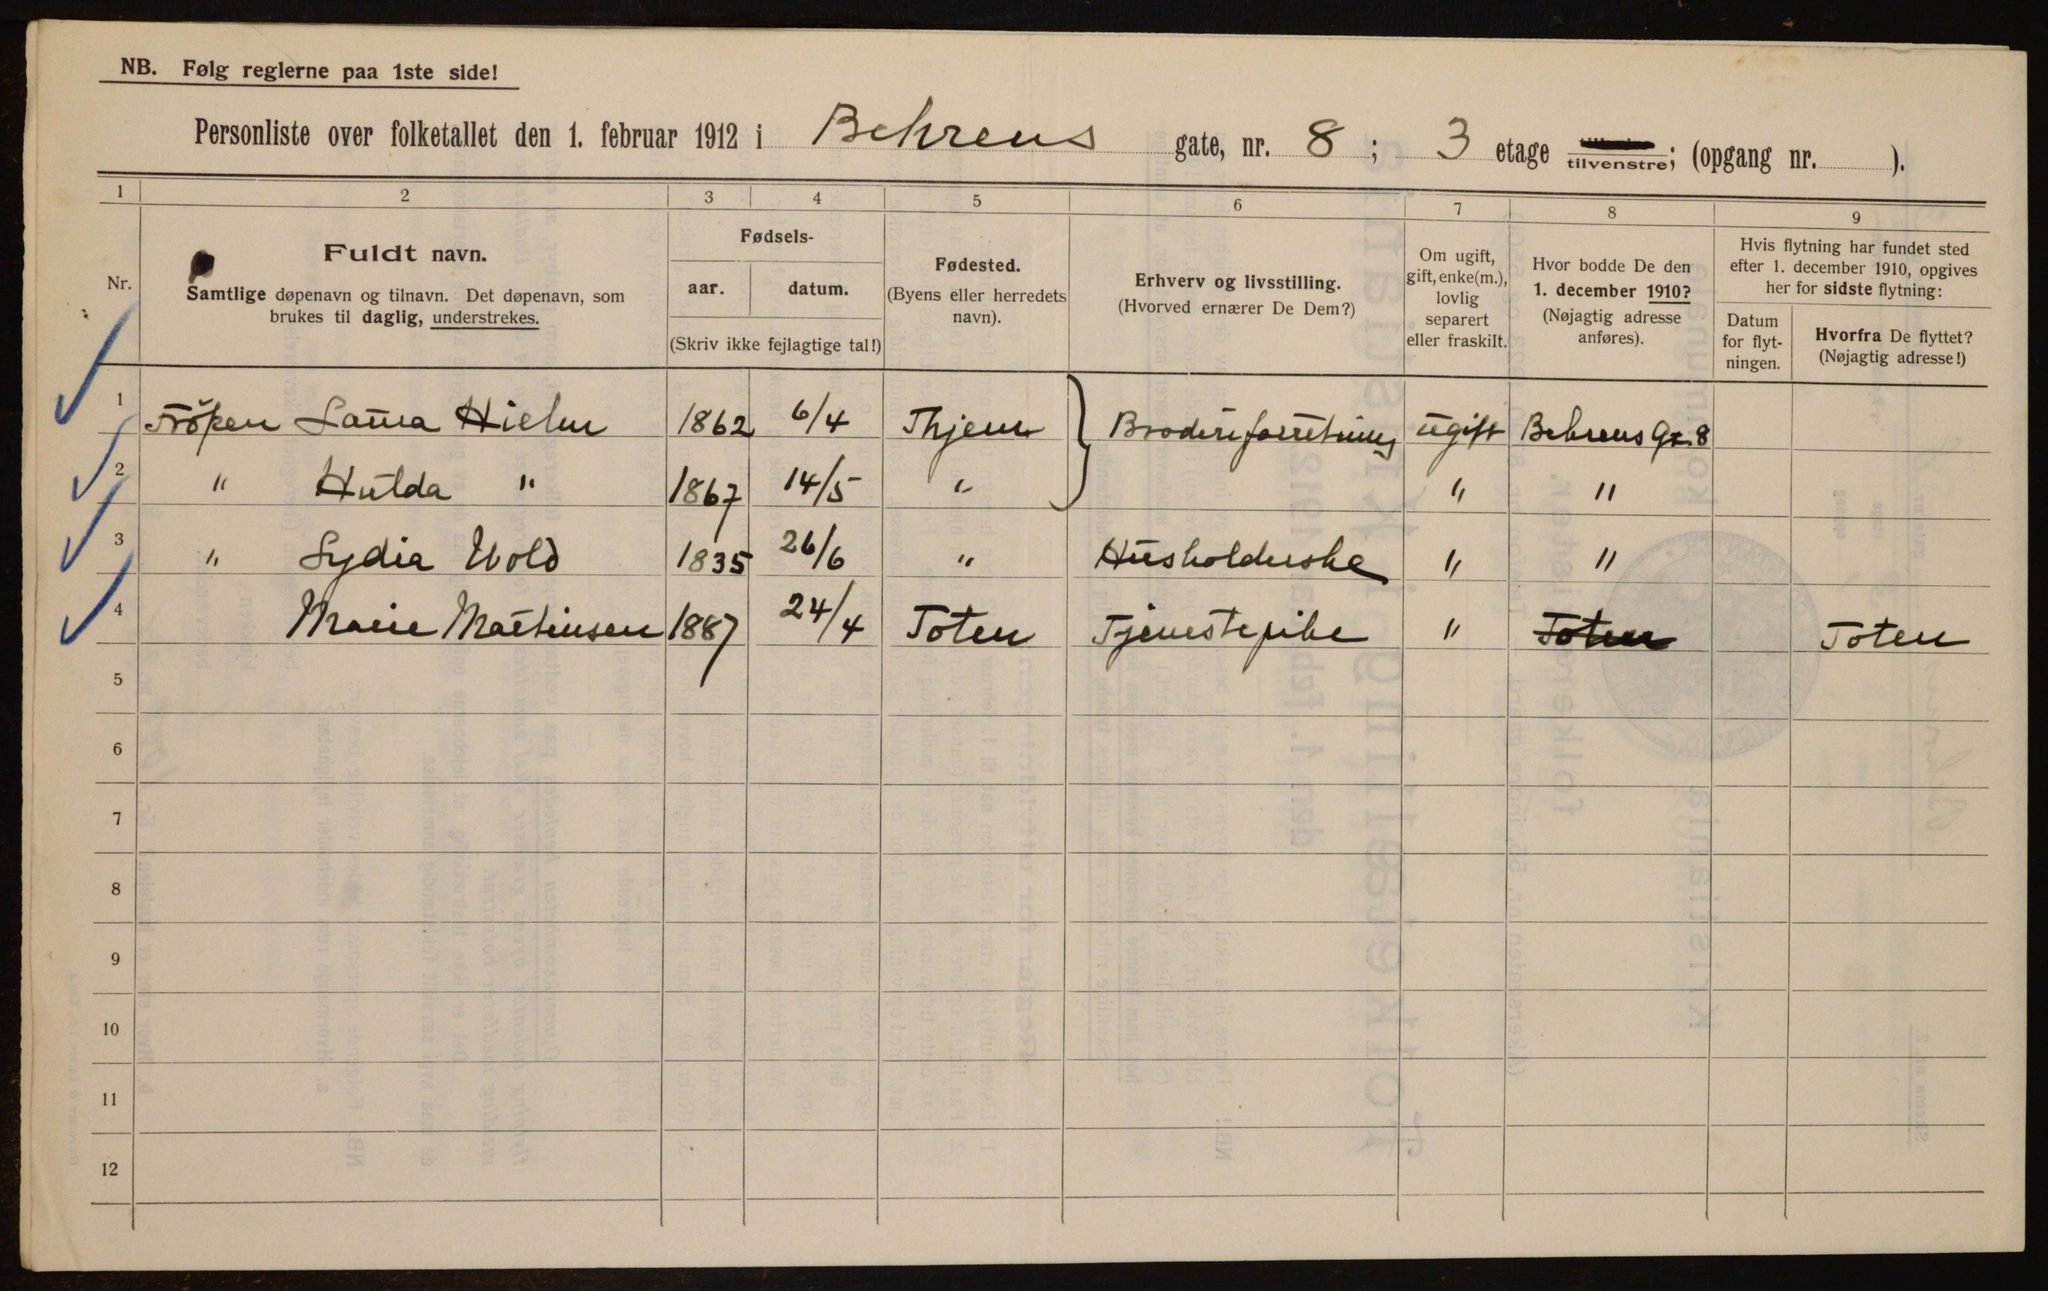 NB. Følg reglerne paa 1ste side!
Personliste over folketallet den 1. februar 1912 i Behrens gate, nr. 8 ; 3 etage tilvenstre; (opgang nr. ).
1 2 3 4 5 6 7 8 9
Nr.
Fuldt navn.
Samtlige døpenavn og tilnavn. Det døpenavn, som
brukes til daglig, understrekes.
Fødsels-
aar. datum.
(Skriv ikke fejlagtige tal!)
Fødested.
(Byens eller herredets
navn).
Erhverv og livsstilling.
(Hvorved ernærer De Dem?)
Om ugift,
gift, enke(m.),
lovlig
separert
eller fraskilt.
Hvor bodde De den
1. december 1910?
(Nøjagtig adresse
anføres).
Hvis flytning har fundet sted
efter 1. december 1910, opgives
her for sidste flytning:
Datum
for flyt-
ningen.
Hvorfra De flyttet?
(Nøjagtig adresse!)
1 Fröken Laura Hielm 1862 6/4 Thjem Broderiforretning ugift Behrens Gt. 8
2 " Hulda " 1867 14/5 " " "
3 " Lydia Wold 1835 26/6 " Husholderske " "
4 Marie Martinsen 1887 24/4 Toten Tjenestepike " Toten Toten
5
6
7
8
9
10
11
12